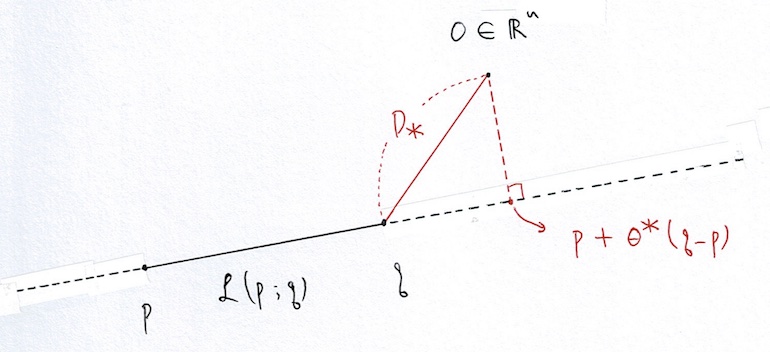 0 ∈ ℝⁿ
D*
p + θ*(q-p)
L(p;q)
q
p